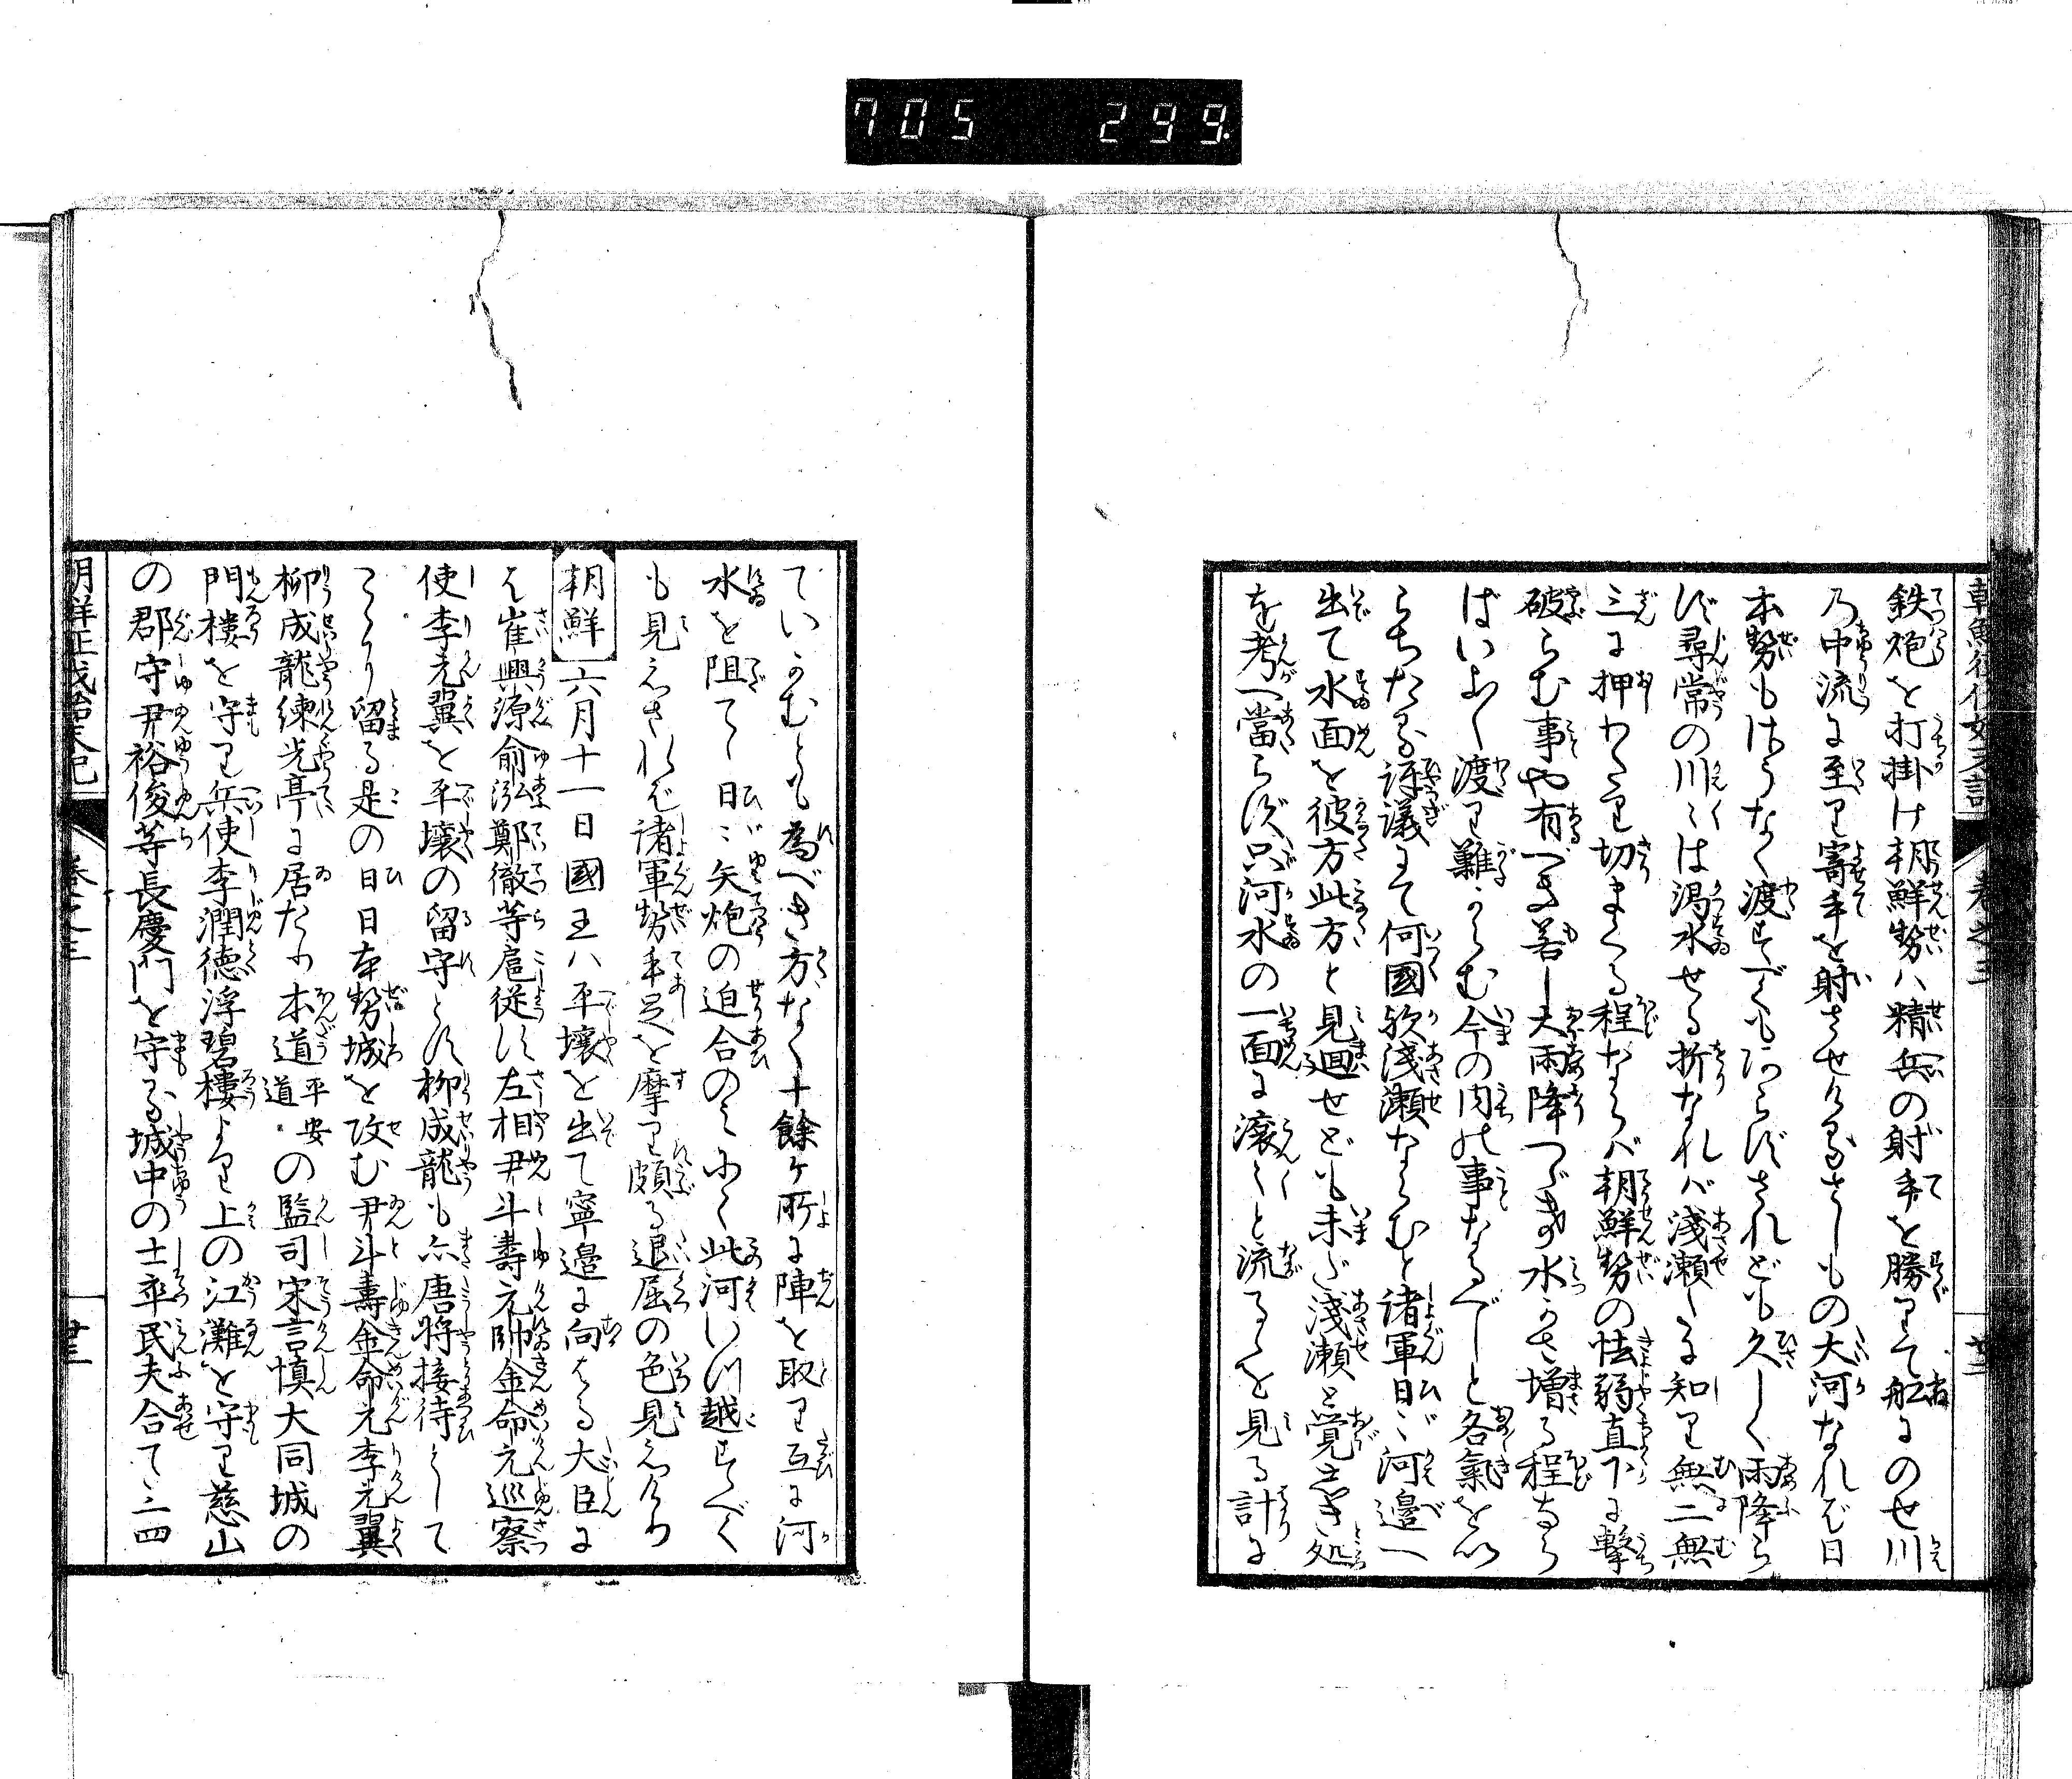 705 299
朝鮮征伐始末記 巻之三 廿二
鉄炮を打掛け朝鮮勢ハ精兵の射手を勝りて舩にのせ川
乃中流に至り寄手を射させけるさしもの大河なれば日
本勢もせうなく渡すべくもあらずされども久しく雨降ら
ず尋常の川々は渇水せる折なれバ淺瀬だに知り無二無
三に押わたり切まくる程ならバ朝鮮勢の怯弱直下に擊
破らむ事や有べき若し大雨降つゞき水かさ増る程なら
ばいよ〱渡り難からむ今の内の事なるべしと各氣をい
らちたる評議にて何國歟淺瀬ならむと諸軍日ゞ河邉へ
出て水面を彼方此方と見廻せども未ダ淺瀬と覚しき処
を考へ當らず只河水の一面に滚〱と流るゝを見る計に
ていかむとも為べき方なく十餘ヶ所に陣を取り互に河
水を阻てゝ日ゞ矢炮の迫合のみにて此河いつ越すべく
も見えざれば諸軍勢手足を摩り頗る退屈の色見えけり
朝鮮 六月十一日國王ハ平壤を出て寧邉に向はる大臣に
は崔興源俞泓鄭徹等扈從す左相尹斗壽元帥金命元巡察
使李元翼を平壤の留守とす柳成龍も亦唐将接待として
こゝり留る是の日日本勢城を攻む尹斗壽金命元李元翼
柳成龍練光亭に居たり本道 平安道 の監司宋言慎大同城の
門樓を守り兵使李潤徳浮碧樓より上の江灘を守り慈山
の郡守尹裕俊等長慶門を守る城中の士卒民夫合て三四
朝鮮征伐始末記 巻之三 廿三